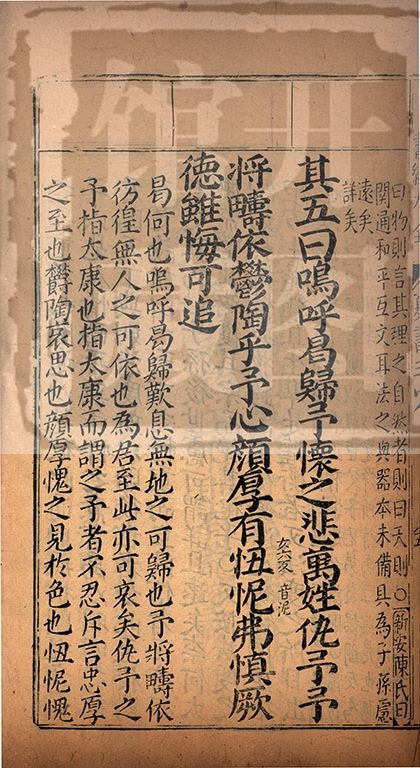 曰物則言其理之自然者則曰天則○新安陳氏曰
關通和平互文耳法之與器本末備具為子孫慮
遠矣
詳矣
其五曰嗚呼曷歸予懷之悲萬姓仇予予
將疇依鬱陶乎予心顏厚有忸怩弗慎厥
女六反 音泥
德雖悔可追
曷何也嗚呼曷歸歎息無地之可歸也予將疇依
彷徨無人之可依也為君至此亦可哀矣仇予之
予指太康也指太康而謂之予者不忍斥言忠厚
之至也欝陶哀思也顏厚愧之見於色也忸怩愧